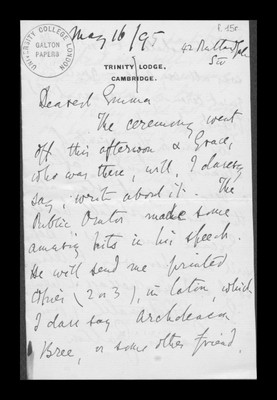 f. 15r
May 16/95
UNIVERSITY COLLEGE LONDON
GALTON
PAPERS
42 Rutland Gate
SW
TRINITY LODGE,
CAMBRIDGE.
Dearest Emma
The ceremony went
off this afternoon & Grace,
who was there, will, I daresay
say, write about it. The
Public Orator made some
amusing hits in his speech.
He will send me printed
copies (2 or 3), in Latin, which
I dare say Archdeacon
Bree, or some other friend